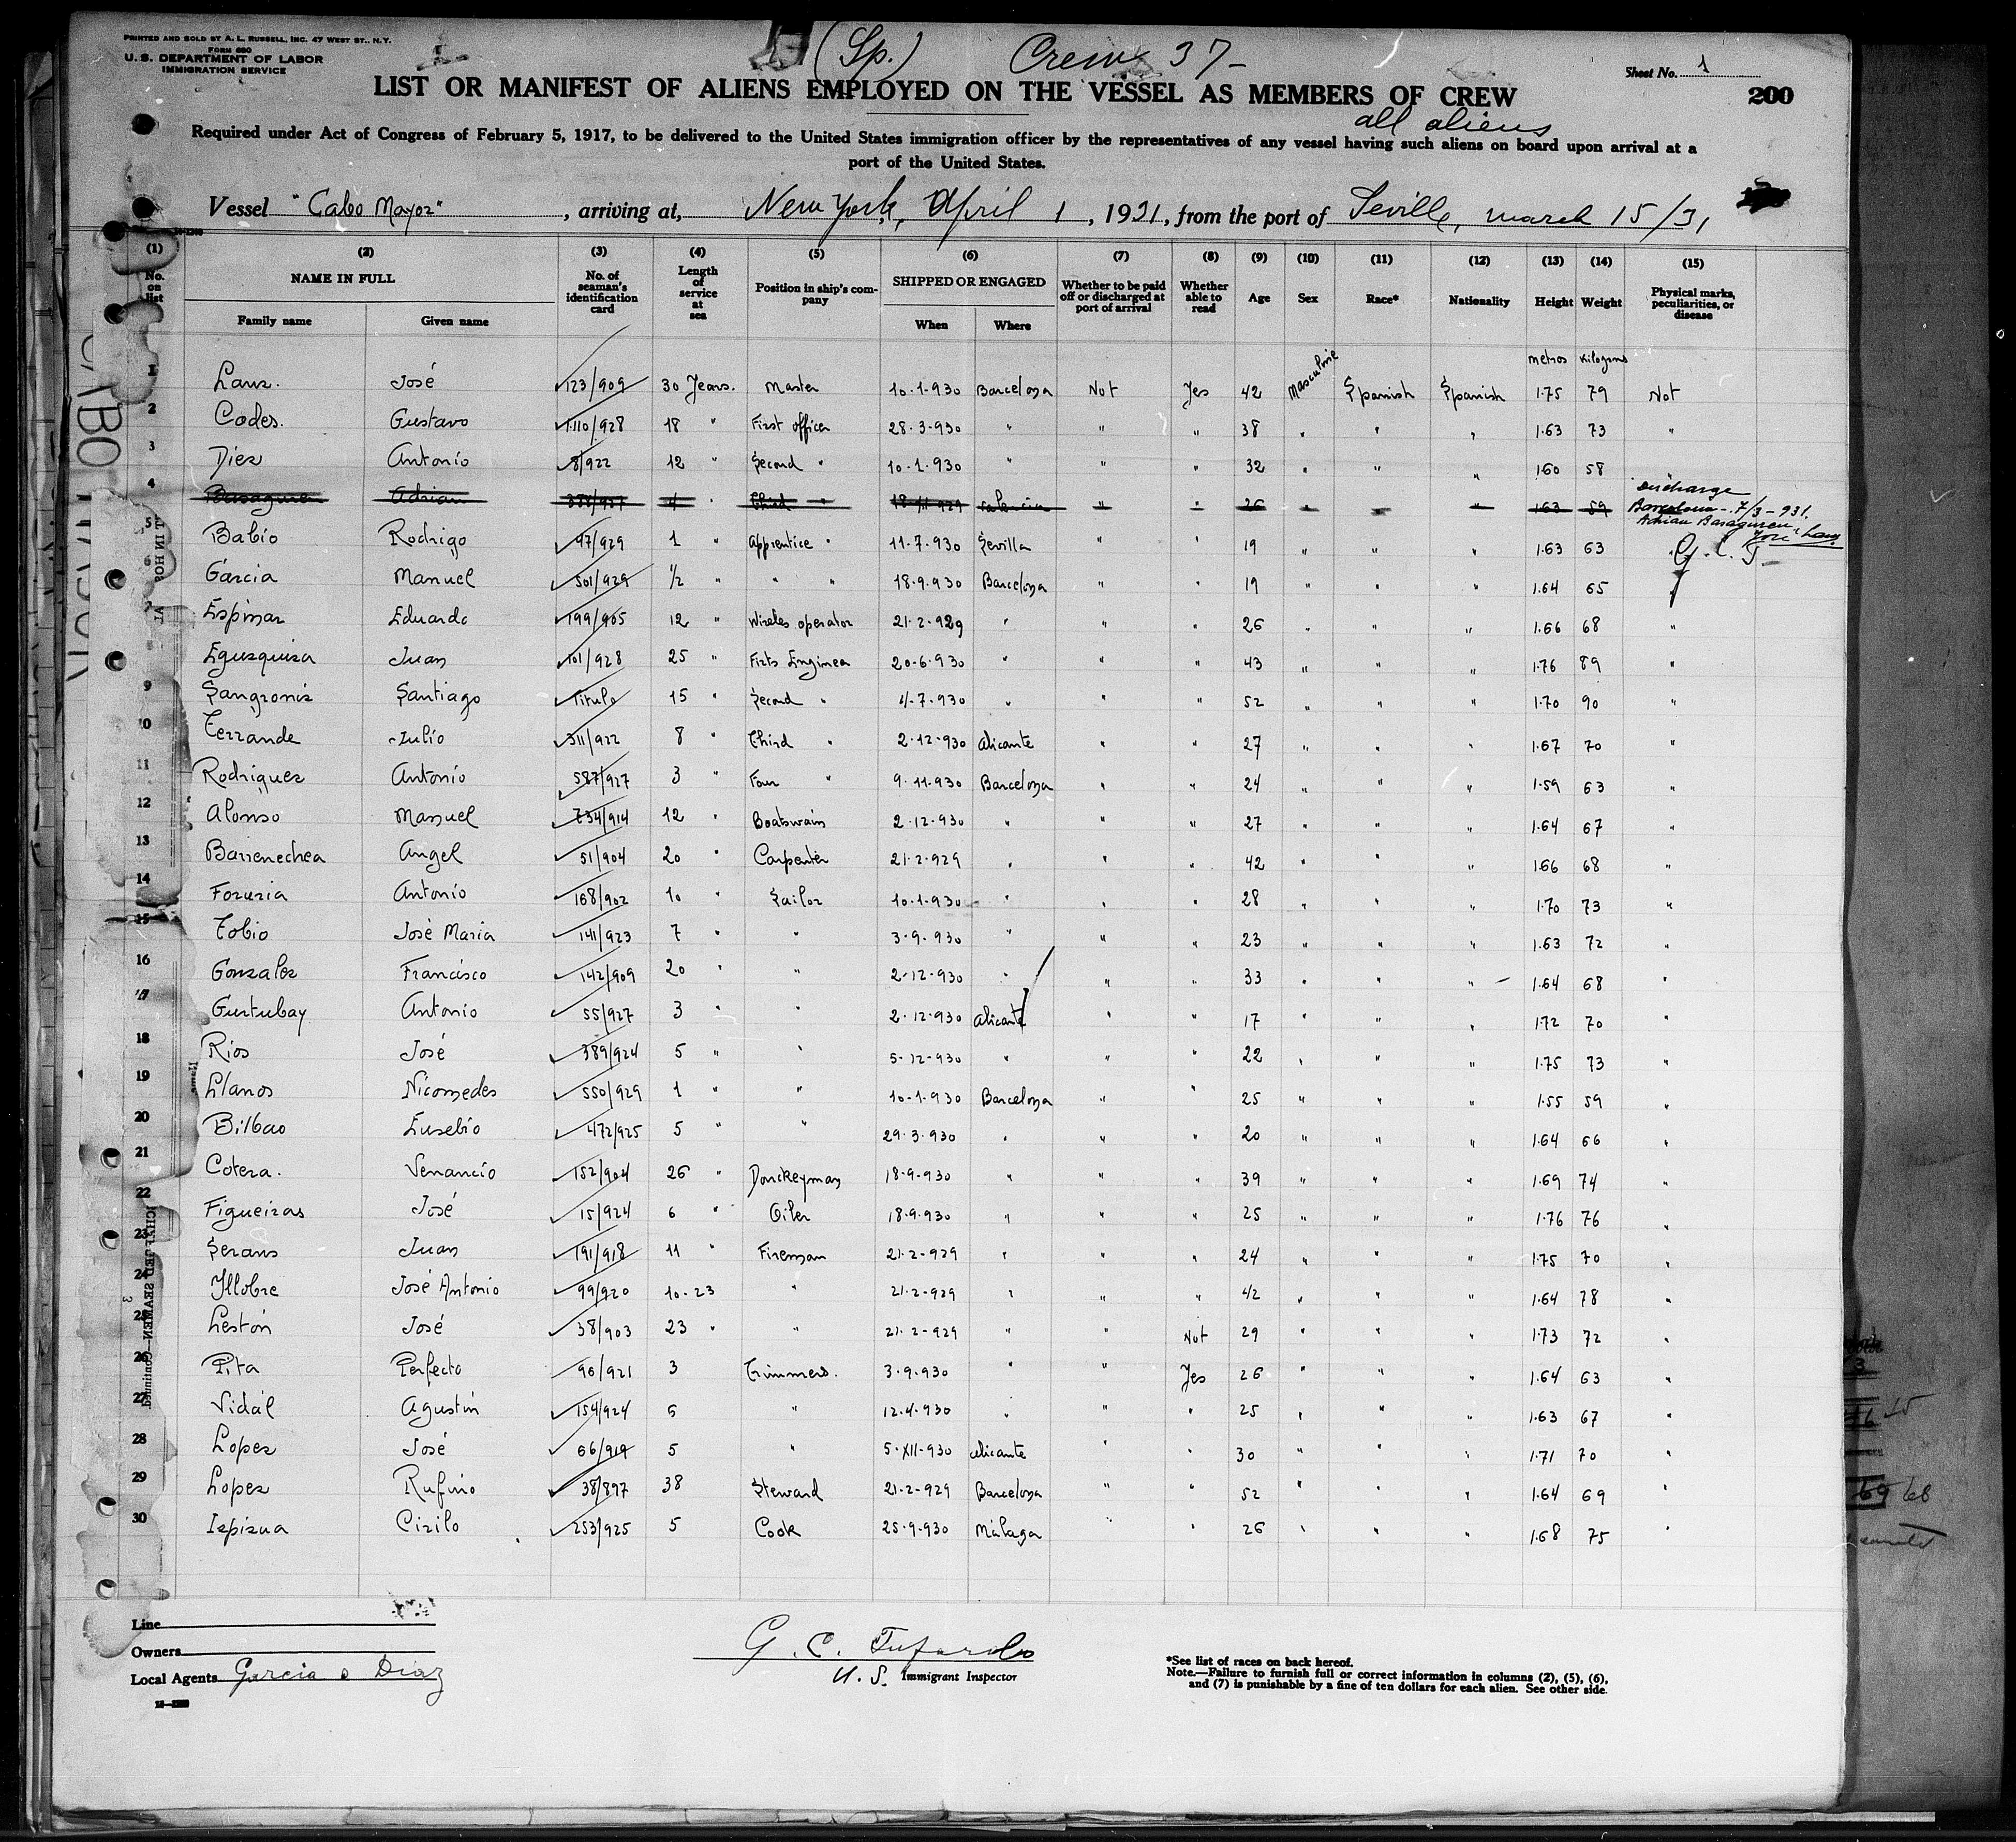 PRINTED AND SOLD BY A. L. RUSSELL, INC. 47 WEST ST., N.Y.
FORM 680
U. S. DEPARTMENT OF LABOR
IMMIGRATION SERVICE
(Sp.) Crew 37-
Sheet No. 1
LIST OR MANIFEST OF ALIENS EMPLOYED ON THE VESSEL AS MEMBERS OF CREW
200
all aliens
Required under Act of Congress of February 5, 1917, to be delivered to the United States immigration officer by the representatives of any vessel having such aliens on board upon arrival at a
port of the United States.
Vessel "Cabo Mayor", arriving at, New York, April 1, 1931, from the port of Seville, march 15/31
(1) (2) (3) (4) (5) (6) (7) (8) (9) (10) (11) (12) (13) (14) (15)
No. on list NAME IN FULL Family name Given name No. of seaman's identification card Length of service at sea Position in ship's company SHIPPED OR ENGAGED When Where Whether to be paid off or discharged at port of arrival Whether able to read Age Sex Race* Nationality Height Weight Physical marks, peculiarities, or disease
metros kilogrms
1 Lanz. José 123/909 30 Years. Master 10-1-930 Barcelona Not Yes 42 Masculine Spanish Spanish 1.75 79 Not
2 Codes. Gustavo 1110/928 18 " First officer 28-3-930 " " " 38 " " " 1.63 73 "
3 Diez Antonio 8/922 12 " Second " 10-1-930 " " " 32 " " " 1.60 58
4 Basaguren Adrian 4 " Third " 26 " " " 1.63 59 Discharge
Barcelona - 7/3-931.
Adrian Basaguren. José Lanz
5 Babio Rodrigo 97/929 1 " Apprentice " 11-7-930 Sevilla " " 19 " " " 1.63 63 G.C.T.
6 Garcia Manuel 501/929 1/2 " " " 18-9-930 Barcelona " " 19 " " " 1.64 65
7 Espinar Eduardo 199/905 12 " Wireles operator 21-2-929 " " " 26 " " " 1.66 68 "
8 Eguzquiza Juan 101/928 25 " Firts Enginea 20-6-930 " " " 43 " " " 1.76 89 "
9 Sangroniz Santiago Titulo 15 " Second " 4-7-930 " " " 52 " " " 1.70 90 "
10 Ferrande Julio 311/922 8 " Third " 2-12-930 Alicante " " 27 " " " 1.67 70 "
11 Rodriguez Antonio 587/927 3 " Four " 9-11-930 Barcelona " " 24 " " " 1.59 63 "
12 Alonso Manuel 734/914 12 " Boatswain 2-12-930 " " " 27 " " " 1.64 67 "
13 Barrenechea Angel 51/904 20 " Carpenter 21-2-929 " " " 42 " " " 1.66 68 "
14 Foruria Antonio 168/902 10 " Sailor 10-1-930 " " " 28 " " " 1.70 73 "
15 Tobio José Maria 141/923 7 " " 3-9-930 " " " 23 " " " 1.63 72 "
16 Gonzalez Francisco 142/909 20 " " 2-12-930 " " " 33 " " " 1.64 68 "
17 Gurtubay Antonio 55/927 3 " " 2-12-930 Alicante " " 17 " " " 1.72 70 "
18 Rios José 389/924 5 " " 5-12-930 " " " 22 " " " 1.75 73 "
19 Llanos Nicomedes 550/929 1 " " 10-1-930 Barcelona " " 25 " " " 1.55 59 "
20 Bilbao Eusebio 472/925 5 " " 29-3-930 " " " 20 " " " 1.64 66 "
21 Cotera. Venancio 152/904 26 " Donckeyman 18-9-930 " " " 39 " " " 1.69 74 "
22 Figueiras José 15/924 6 " Oiler 18-9-930 " " " 25 " " " 1.76 76 "
23 Serans Juan 191/918 11 " Fireman 21-2-929 " " " 24 " " " 1.75 70 "
24 Yllobre José Antonio 99/920 10-23 " 21-2-929 " " " 42 " " " 1.64 78 "
25 Lestón José 38/903 23 " " 21-2-929 " " Not 29 " " " 1.73 72 "
26 Pita Perfecto 96/921 3 Trimmers. 3-9-930 " " Yes 26 " " " 1.64 63 "
27 Vidál Agustin 154/924 6 " 12-4-930 " " " 25 " " " 1.63 67 "
28 Lopez José 66/919 5 " 5-XII-930 Alicante " " 30 " " " 1.71 70 "
29 Lopez Rufino 38/897 38 Steward 21-2-929 Barcelona " " 52 " " " 1.64 69 "
30 Ispizua Cirilo 253/925 5 Cook 25-9-930 Málaga " " 26 " " " 1.68 75 "
Line
Owners
Local Agents Garcia & Diaz
G. C. Tufarolo
U. S. Immigrant Inspector
*See list of races on back hereof.
Note.—Failure to furnish full or correct information in columns (2), (5), (6),
and (7) is punishable by a fine of ten dollars for each alien. See other side.